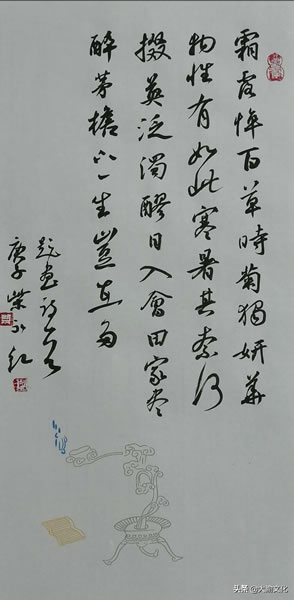 霜露悴百草時菊獨妍華
物性有如此寒暑其奈何
掇英泛濁醪日入會田家尽
醉茅檐下一生豈在多
庚子柴永红
头条 @大瀛文化